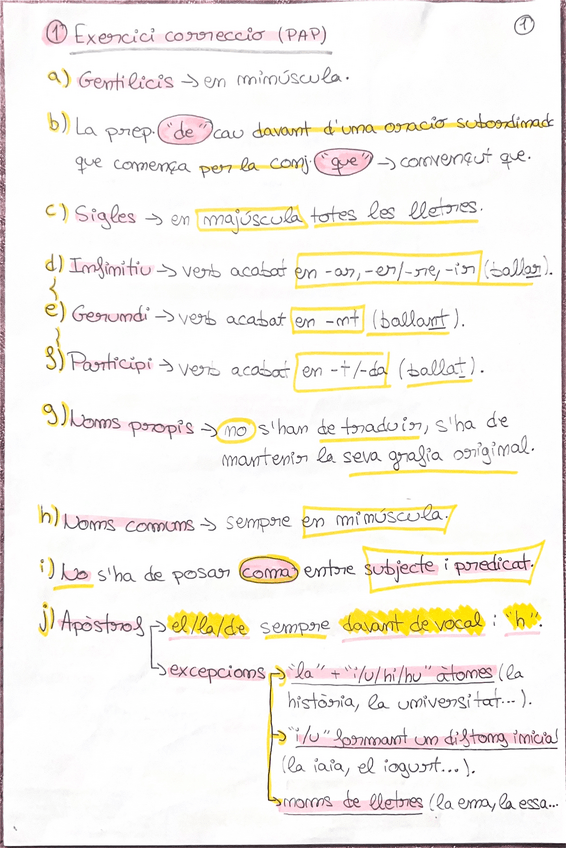 ① Exercici correcció (PAP)
①
a) Gentilicis → en minúscula.
b) La prep. "de" cau davant d'una oració subordinada
que comença per la conj. "que" → convençut que.
c) Sigles → en majúscula totes les lletres.
d) Infinitiu → verb acabat en -ar, -er/-re, -ir (ballar).
e) Gerundi → verb acabat en -nt (ballant).
f) Participi → verb acabat en -t/-da (ballat).
g) Noms propis → no s'han de traduir, s'ha de
mantenir la seva grafia original.
h) Noms comuns → sempre en minúscula.
i) No s'ha de posar coma entre subjecte i predicat.
j) Apòstrof → el/la/de sempre davant de vocal i "h".
→ excepcions → "la" + "i/u/hi/hu" àtones (la
història, la universitat...).
→ "i/u" formant un diftong inicial
(la iaia, el iogurt...).
→ noms de lletres (la ema, la essa...